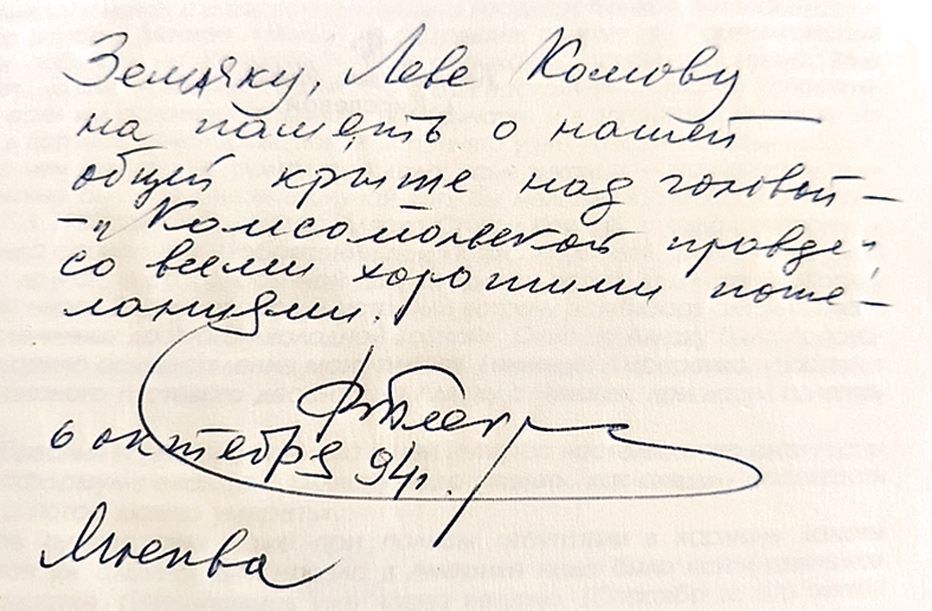 Земляку, Леве Комову
на память о нашей
общей крыше над головой –
– "Комсомольской правде",
со всеми хорошими поже-
ланиями.
6 октября 94 г.
Москва